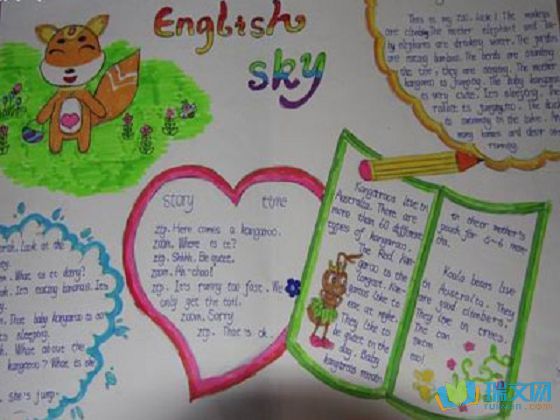 English
sky
This is my zoo. Look! The monkeys
are climbing. The mother elephant and
elephants are drinking water. The pandas
are eating bamboo. The birds are
the
they are singing. The mother
kangaroo is jumping. The baby kangaroo
is very cute. It's sleeping.
rabbit is jumping too. The
is swimming in the lake.
many
and deer are
running.
story time
zip. Here comes a kangaroo.
zoom. Where is it?
zip. Shhh. Be quiet.
zoom. Ah-choo!
zip. It's running too fast. We
only get the tail.
zoom. Sorry
zip. That's ok.
Look at the
What is it doing?
It's eating bananas. It's
That baby kangaroo is
sleeping.
What about the
kangaroo? What is
She's jump-
Kangaroos live in
Australia. There are
more than 60 different
types of kangaroos.
The Red Kan-
garoo is the
largest. Kan-
garoos like to
eat at night.
They like to
be quiet in the
day. Baby
kangaroos
in their mother's
pouch for 5-6 mon
ths.
Koala bears live
in Australia. They
are good climbers.
They live in trees.
The can
swim
too!
瑞文网
ruiwen.com